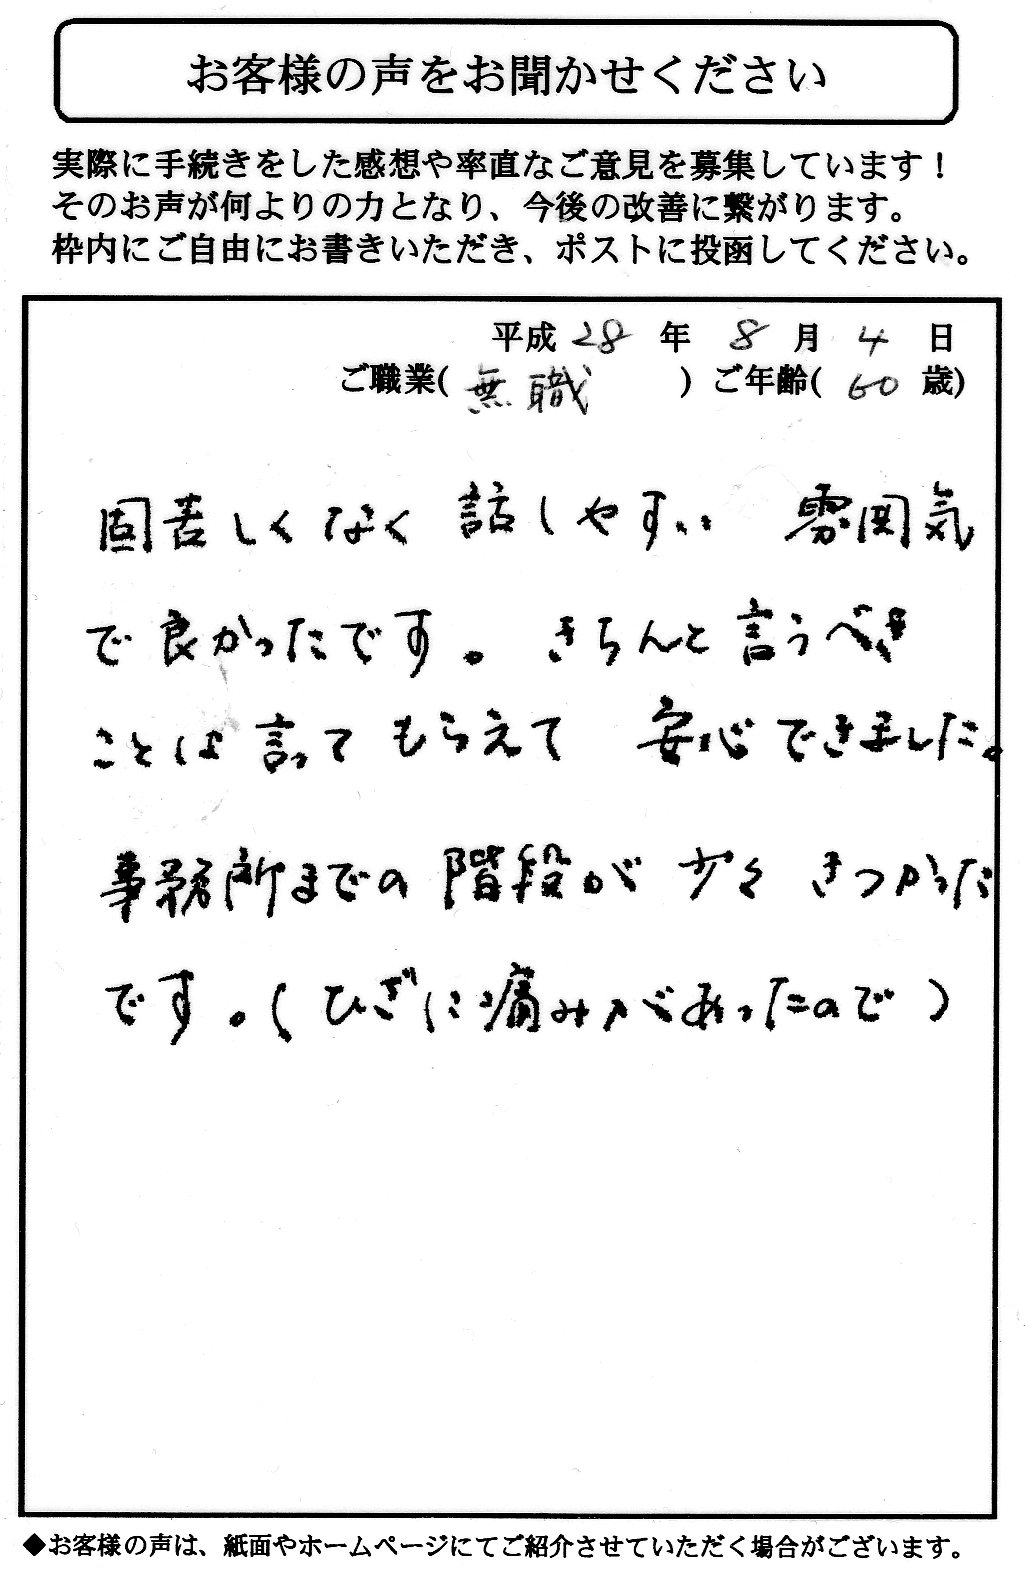 お客様の声をお聞かせください
実際に手続きをした感想や率直なご意見を募集しています！
そのお声が何よりの力となり、今後の改善に繋がります。
枠内にご自由にお書きいただき、ポストに投函してください。
平成 28 年 8 月 4 日
ご職業( 無職 ) ご年齢( 60 歳)
固苦しくなく 話しやすい 雰囲気
で良かったです。きちんと言うべき
ことは言ってもらえて 安心できました。
事務所までの階段が 少々 きつかった
です。( ひざに痛みがあったので )
◆お客様の声は、紙面やホームページにてご紹介させていただく場合がございます。